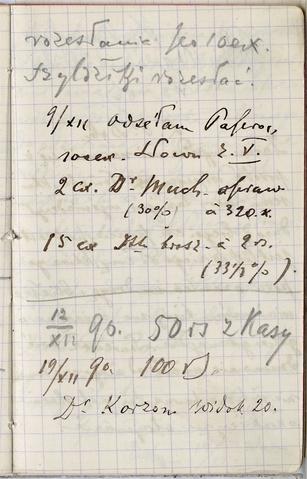 rozesłanie po 10 ex.
rozesłać.
9/XII odesłam
10 ex. Słown z. V.
2 ex. Dr Much. opraw
(30%) à 320 k.
15 ex brosz. à 2 rs.
(33⅓%).
12/XII 90. 50 rs z Kasy
19/XII 90. 100 rs.
Dr Korzon Widok 20.